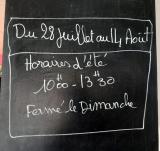 Du 28 Juillet au 14 Août
Horaires d'été
10H00 - 13H30
Fermé le Dimanche